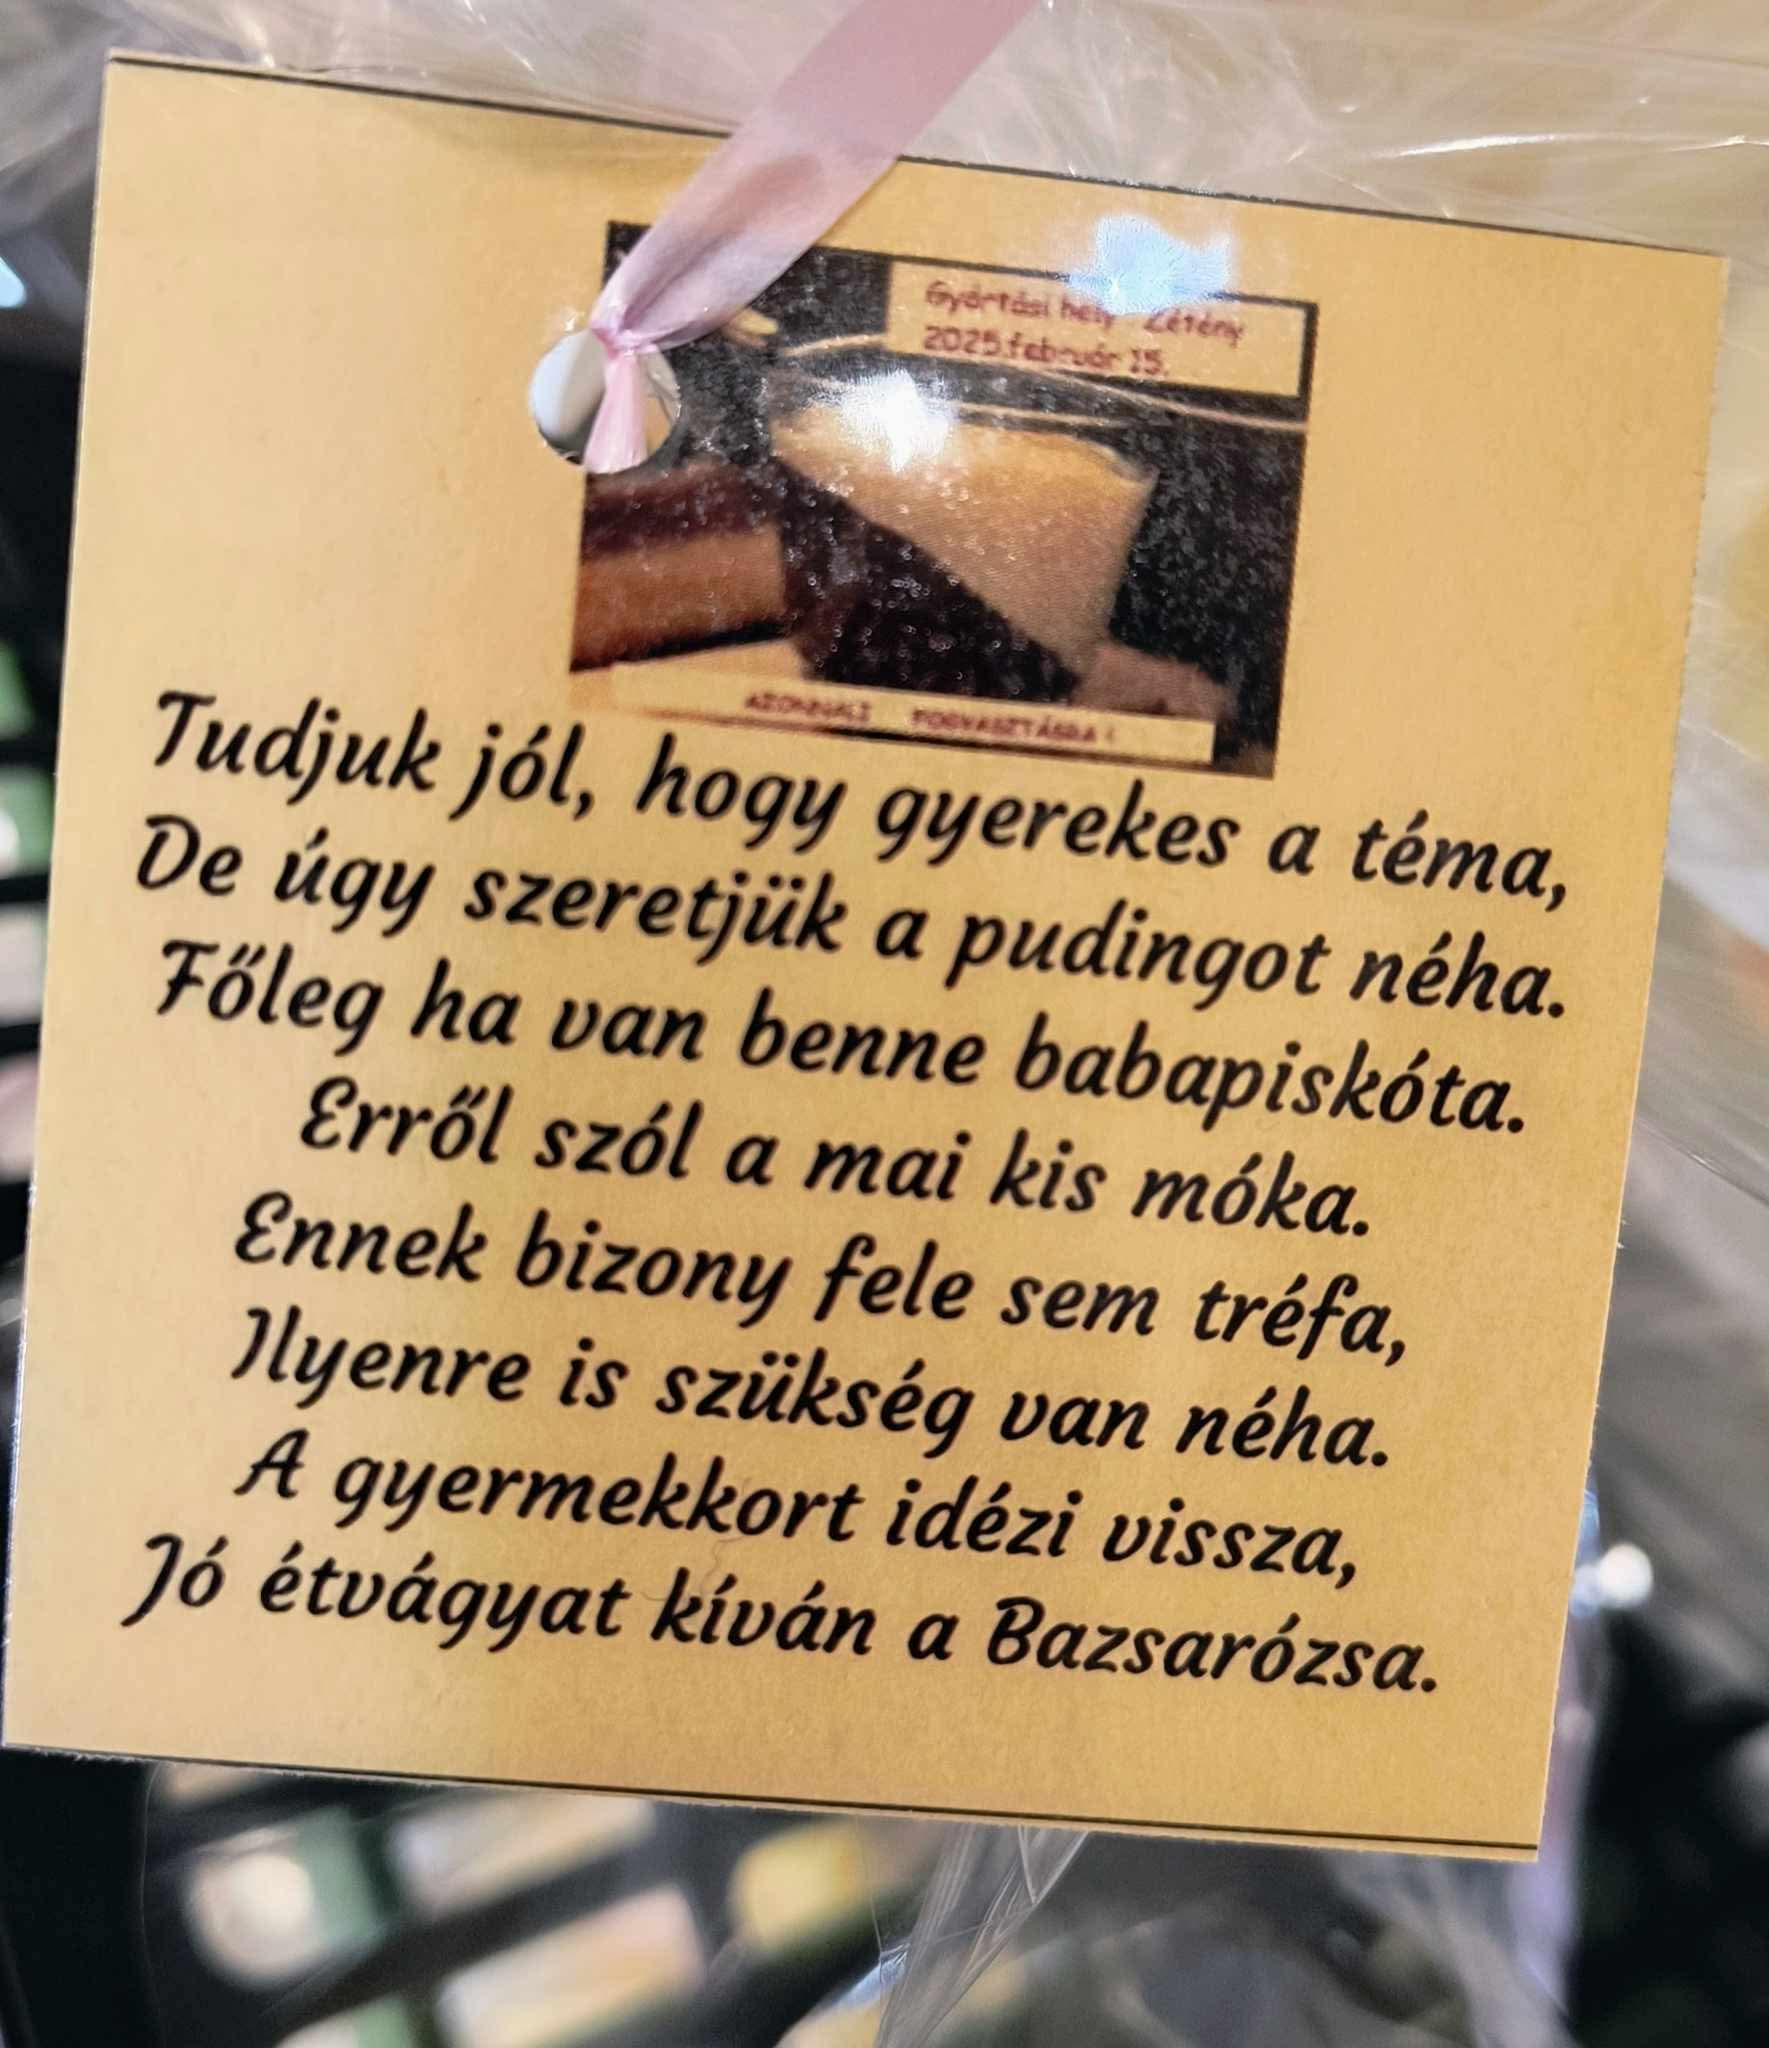 Gyártási hely Zétény
2025.február 15.
AZONNALI FOGYASZTÁSRA !
Tudjuk jól, hogy gyerekes a téma,
De úgy szeretjük a pudingot néha.
Főleg ha van benne babapiskóta.
Erről szól a mai kis móka.
Ennek bizony fele sem tréfa,
Ilyenre is szükség van néha.
A gyermekkort idézi vissza,
Jó étvágyat kíván a Bazsarózsa.